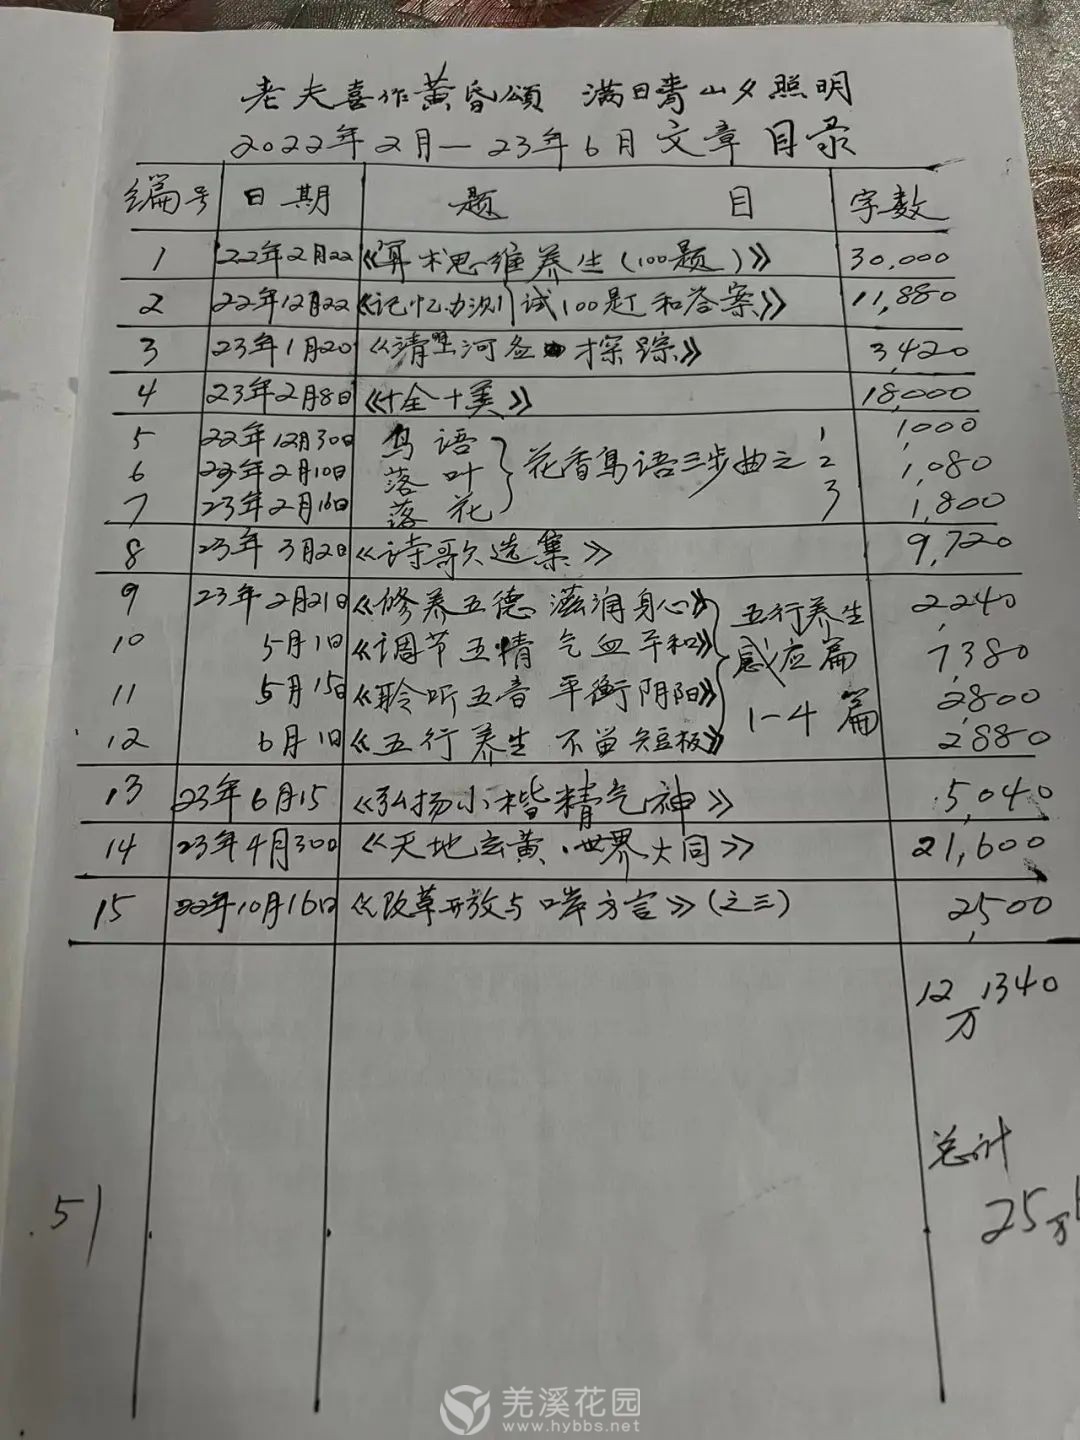 老夫喜作黄昏颂 满目青山夕照明
2022年2月—23年6月文章目录
编号 日期 题目 字数
1 22年2月22《算术思维养生(100题)》 30,000
2 22年12月22《记忆力测试100题和答案》 11,880
3 23年1月20《清 河 探踪》 3,420
4 23年2月8日《十全十美》 18,000
5 22年12月30日 鸟语 花香鸟语三步曲之 1 1,000
6 23年2月10日 落叶 2 1,080
7 23年2月16日 落花 3 1,800
8 23年3月2日《诗歌选集》 9,720
9 23年2月21日《修养五德 滋润身心》 五行养生 2,240
10 5月1日《调节五情 气血平和》 感应篇 7,380
11 5月15日《聆听五音 平衡阴阳》 1-4篇 2,800
12 6月1日《五行养生 不留短板》 2880
13 23年6月15《弘扬小楷精气神》 5,040
14 23年4月30日《天地玄黄·世界大同》 21,600
15 22年10月16日《改革开放与 方言》(之三) 2,500
12万1340
总计
25万
51
羌溪花园
www.hybbs.net